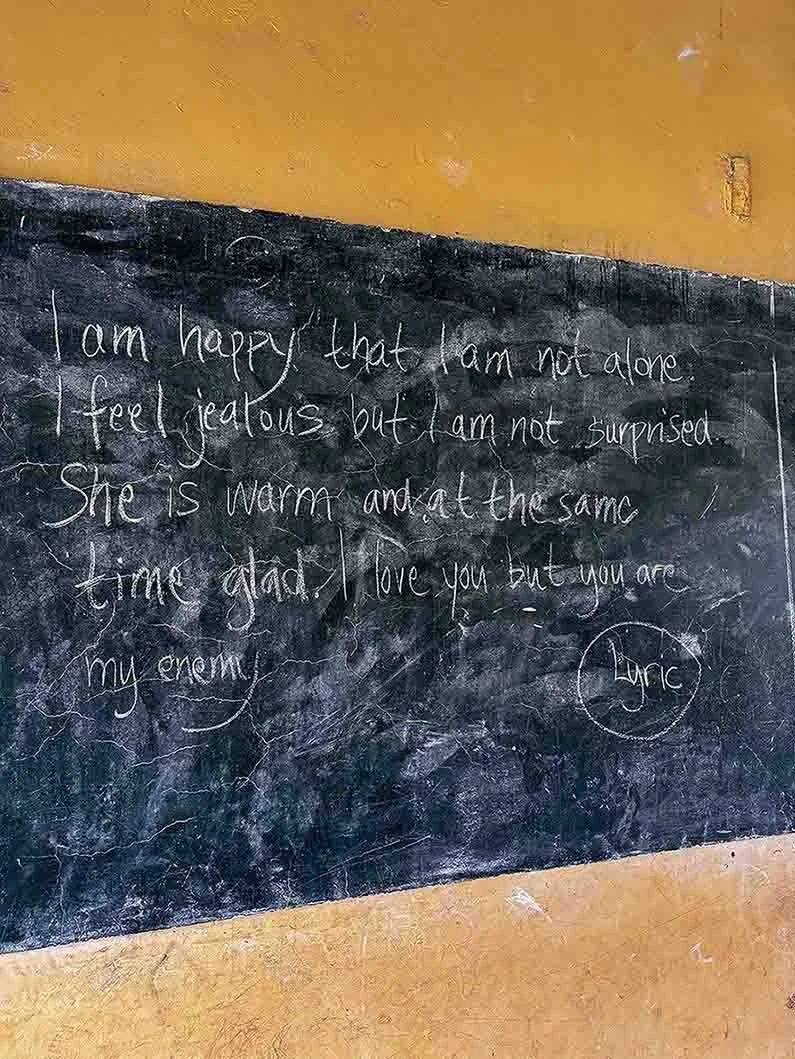 I am happy that I am not alone.
I feel jealous but I am not surprised.
She is warm and at the same
time glad. I love you but you are
my enemy
Lyric